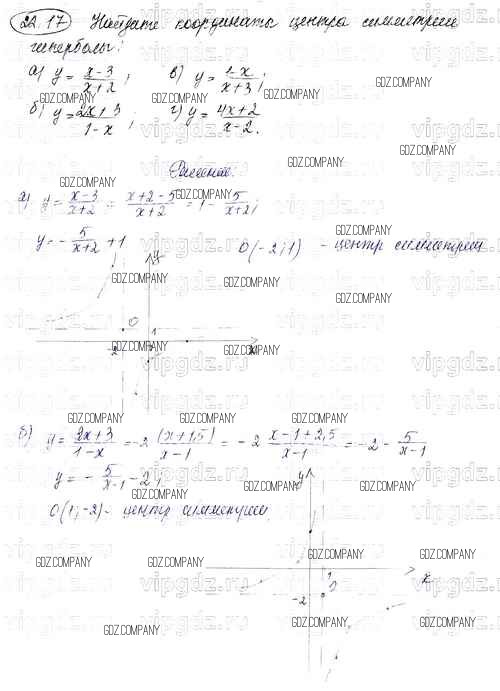 22.17 Найдите координаты центра симметрии
гиперболы:
а) y = (x-3)/(x+2); в) y = (1-x)/(x+3);
б) y = (2x+3)/(1-x); г) y = (4x+2)/(x-2).
Решение.
а) y = (x-3)/(x+2) = (x+2-5)/(x+2) = 1 - 5/(x+2);
y = - 5/(x+2) + 1 O(-2; 1) - центр симметрии
y
O 1
-2 x
б) y = (2x+3)/(1-x) = -2 (x+1,5)/(x-1) = -2 (x-1+2,5)/(x-1) = -2 - 5/(x-1)
y = - 5/(x-1) - 2;
O(1; -2) - центр симметрии.
y
1 x
O
-2
GDZ.COMPANY
vipgdz.ru